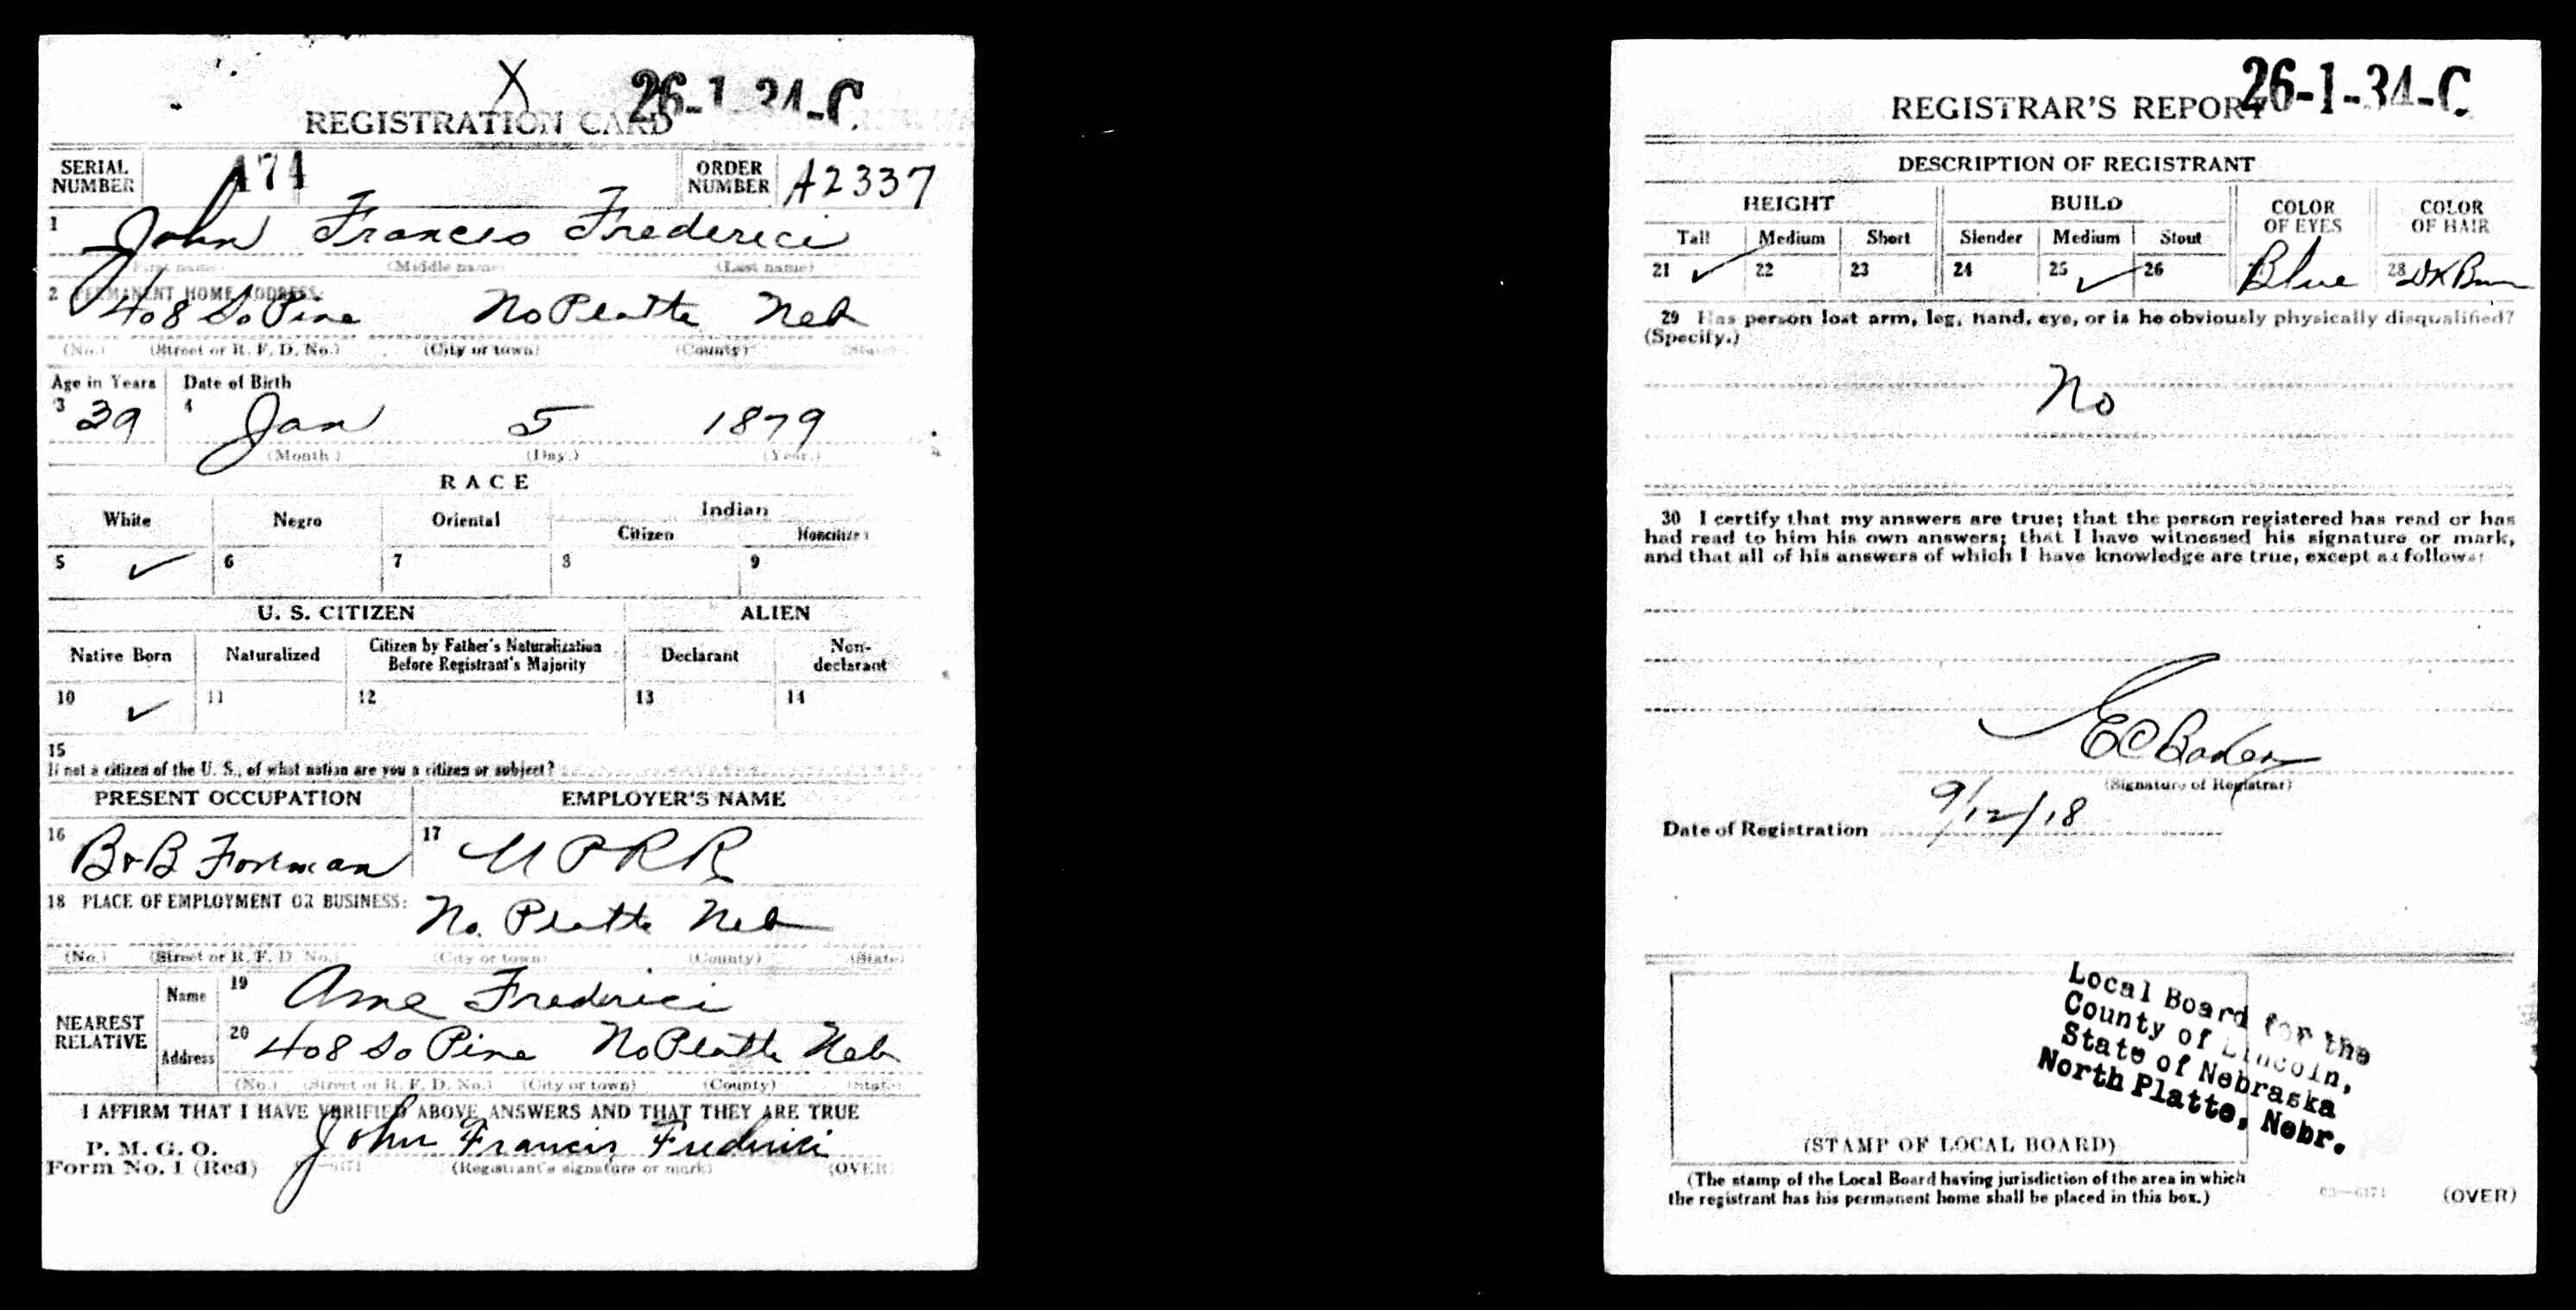 X
26-1-34-C
REGISTRATION CARD
SERIAL NUMBER 474 ORDER NUMBER A2337
1 John Francis Frederici
(First name) (Middle name) (Last name)
2 PERMANENT HOME ADDRESS:
408 So Pine No Platte Neb
(No.) (Street or R. F. D. No.) (City or town) (County) (State)
Age in Years Date of Birth
3 39 4 Jan 5 1879
(Month.) (Day.) (Year.)
RACE
White Negro Oriental Indian
Citizen Noncitizen
5 ✓ 6 7 8 9
U. S. CITIZEN ALIEN
Native Born Naturalized Citizen by Father's Naturalization Before Registrant's Majority Declarant Non-declarant
10 ✓ 11 12 13 14
15
If not a citizen of the U. S., of what nation are you a citizen or subject?
PRESENT OCCUPATION EMPLOYER'S NAME
16 B+B Foreman 17 U P R R
18 PLACE OF EMPLOYMENT OR BUSINESS:
No. Platte Neb
(No.) (Street or R. F. D. No.) (City or town) (County) (State)
NEAREST RELATIVE
Name 19 Frederici
Address 20 408 So Pine No Platte Neb
(No.) (Street or R. F. D. No.) (City or town) (County) (State)
I AFFIRM THAT I HAVE VERIFIED ABOVE ANSWERS AND THAT THEY ARE TRUE
P. M. G. O.
Form No. 1 (Red)
John Francis Frederici
(Registrant's signature or mark) (OVER)
26-1-34-C
REGISTRAR'S REPORT
DESCRIPTION OF REGISTRANT
HEIGHT BUILD COLOR OF EYES COLOR OF HAIR
Tall Medium Short Slender Medium Stout
21 ✓ 22 23 24 25 ✓ 26 Blue 28 Dk Brn
29 Has person lost arm, leg, hand, eye, or is he obviously physically disqualified?
(Specify.)
No
30 I certify that my answers are true; that the person registered has read or has
had read to him his own answers; that I have witnessed his signature or mark,
and that all of his answers of which I have knowledge are true, except as follows:
(Signature of Registrar)
Date of Registration 9/12/18
Local Board for the
County of Lincoln,
State of Nebraska
North Platte, Nebr.
(STAMP OF LOCAL BOARD)
(The stamp of the Local Board having jurisdiction of the area in which
the registrant has his permanent home shall be placed in this box.)
03—6171 (OVER)